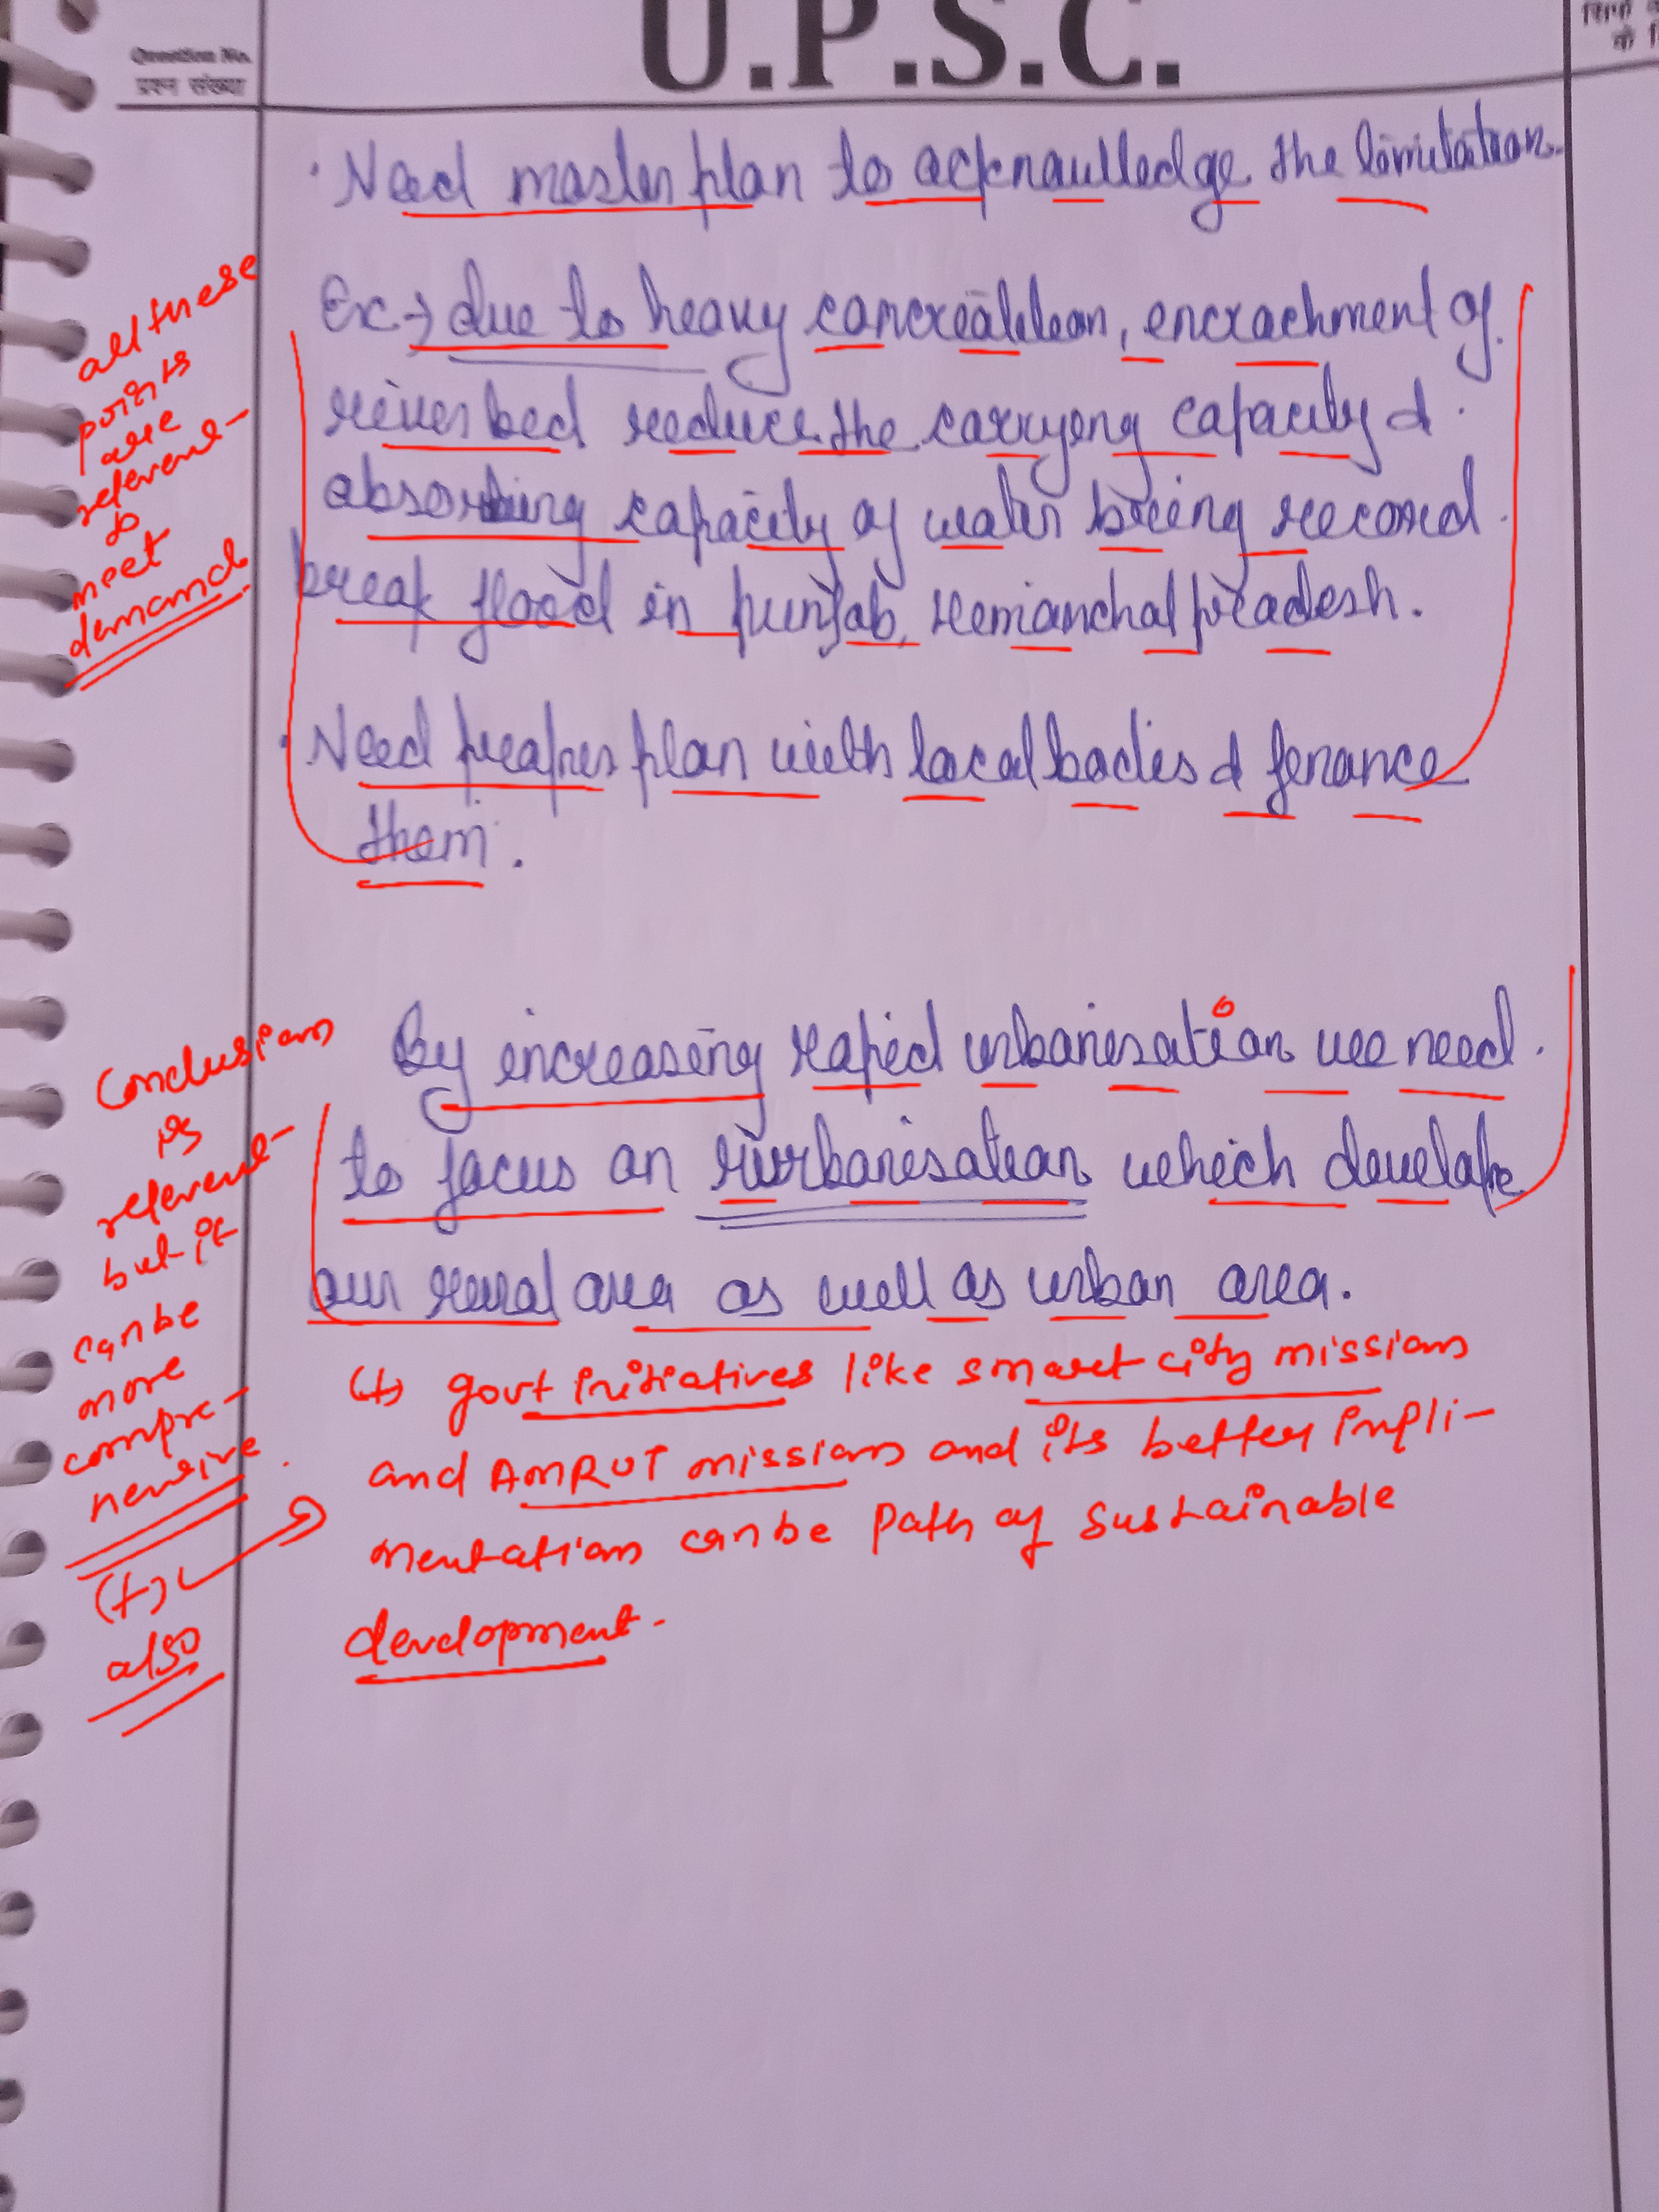 Question No.
प्रश्न संख्या
U.P.S.C.
· Need master plan to acknaulledge the limitation.
Ex → due to heavy concreatetion, encrachment of
river bed reduce the carryeng capacity &
absorbing capacity of water breing record
break flood in punjab, Hemianchal pradesh.
· Need preaper plan with local bodies & finance
them.
all these
points
are
relevent
to
meet
demand
By increasing rapid urbanisation we need
to focus on rurbanisation which develope
our rural area as well as urban area.
Conclusion
is
relevent
but it
can be
more
compre-
hensive
(+)
also
(+) govt initiatives like smart city mission
and AMRUT mission and its better impli-
mentation can be path of sustainable
development.